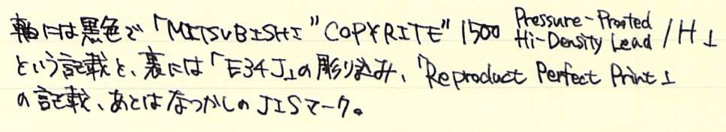 軸には黒色で「MITSUBISHI "COPYRITE" 1500 Pressure-Prooted Hi-Density Lead / H」
という記載と、裏には「E34J」の彫り込み、「Reproduct Perfect Print」
の記載、あとはなつかしのJISマーク。